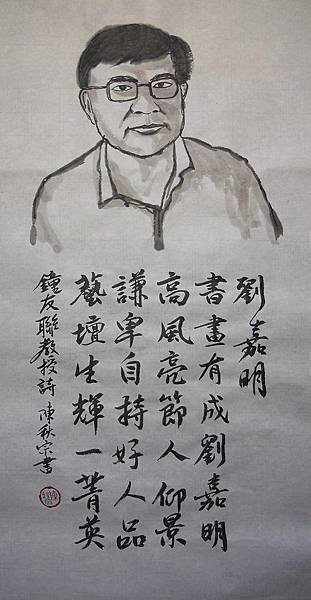 劉嘉明
書畫有成劉嘉明
高風亮節人仰景
謙卑自持好人品
藝壇生輝一菁英
鐘友聯教授詩 陳秋宗書